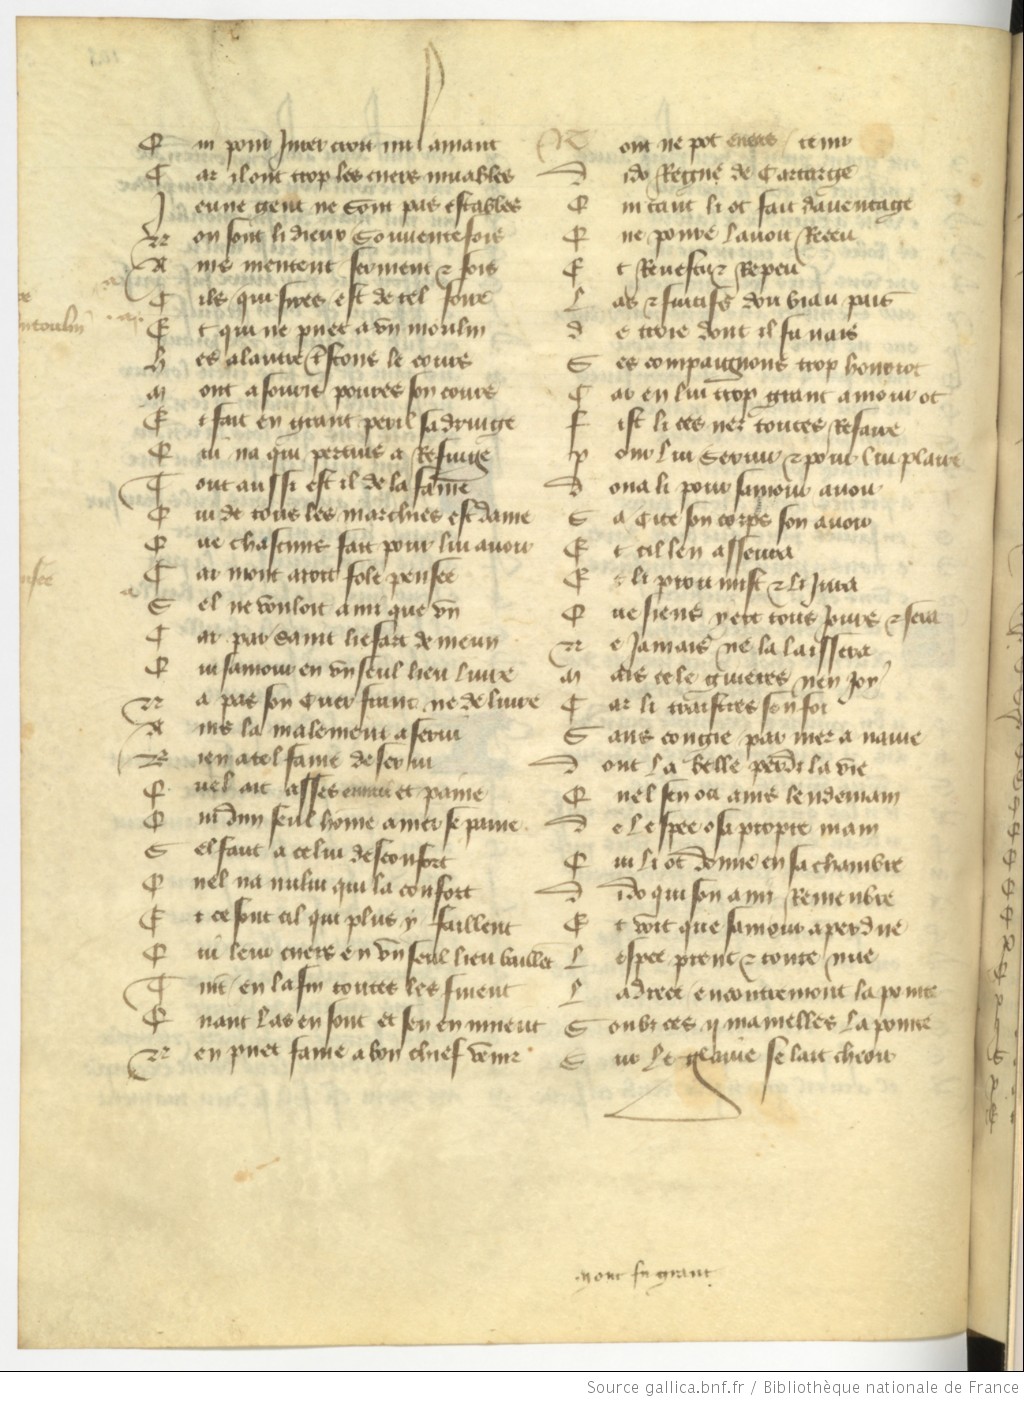 Q ui pour Jurer croit nul amant
C ar il ont trop les cuers muables
J eune gent ne sont pas estables
N on sont li dieux souventesfois
A ins mentent serment et fois
C ils qui sires est de tel
E t qui ne puet a un moulin
h es a lautre le cours
M ont a souris poures son cours
E t fait en grant peril sa druige
Q ui na qui pertuis a Refuige
T out aussi est il de la fame
Q ui de tous les marchies est dame
Q ue chascuns fait pour lui avoir
C ar mont aroit fole pensee
S el ne vouloit ami que un
C ar par saint liefart de meun
Q ui samour en un seul lieu livre
N a pas son cuer franc ne delivre
A ins la malement aservi
R ien a tel fame deservi
Q uel ait asses ennui et paine
Q ui dun seul home amer se paine
S el faut a celui de confort
Q uel na nului qui la confort
E t ce sont cil qui plus y faillent
Q ui leur cuers en un seul lieu baillent
T uit en la fin toutes les fuient
Q uant las en sont et sen ennuient
N en puet fame a bon chief venir
N out ne pot tenir
D ido Regne de Cartarge
Q ui tant li ot fait daventage
Q ue poure lavoit Receu
E t Revestu et Repeu
L as et fuitifs dou biau pais
d e troie dont il fu nais
S es compaignons trop honorot
C ar en lui trop grant amour ot
F ist li ces nefs toutes Refaire
p our lui servir et pour lui plaire
D ona li pour samour avoir
S a cite son corps son avoir
E t cil len asseura
E t li proumist et li Jura
Q ue siens yert tous jours et sera
N e Jamais ne la laissera
M ais cele guieres nen Joy
C ar li traistres senfoi
S ans congie par mer a navie
D ont la belle perdi la vie
Q uel sen ocit ains lendemain
D e lespee o sa propre main
Q ui li ot donne en sa chambre
D ido qui son ami Remenbre
E t voit que samour a perdue
L espee prent et toute nue
L a drece encontremont la pointe
S oubz ces ij mamelles la pointe
S ur le glaive se lait cheoir
mont fu grant